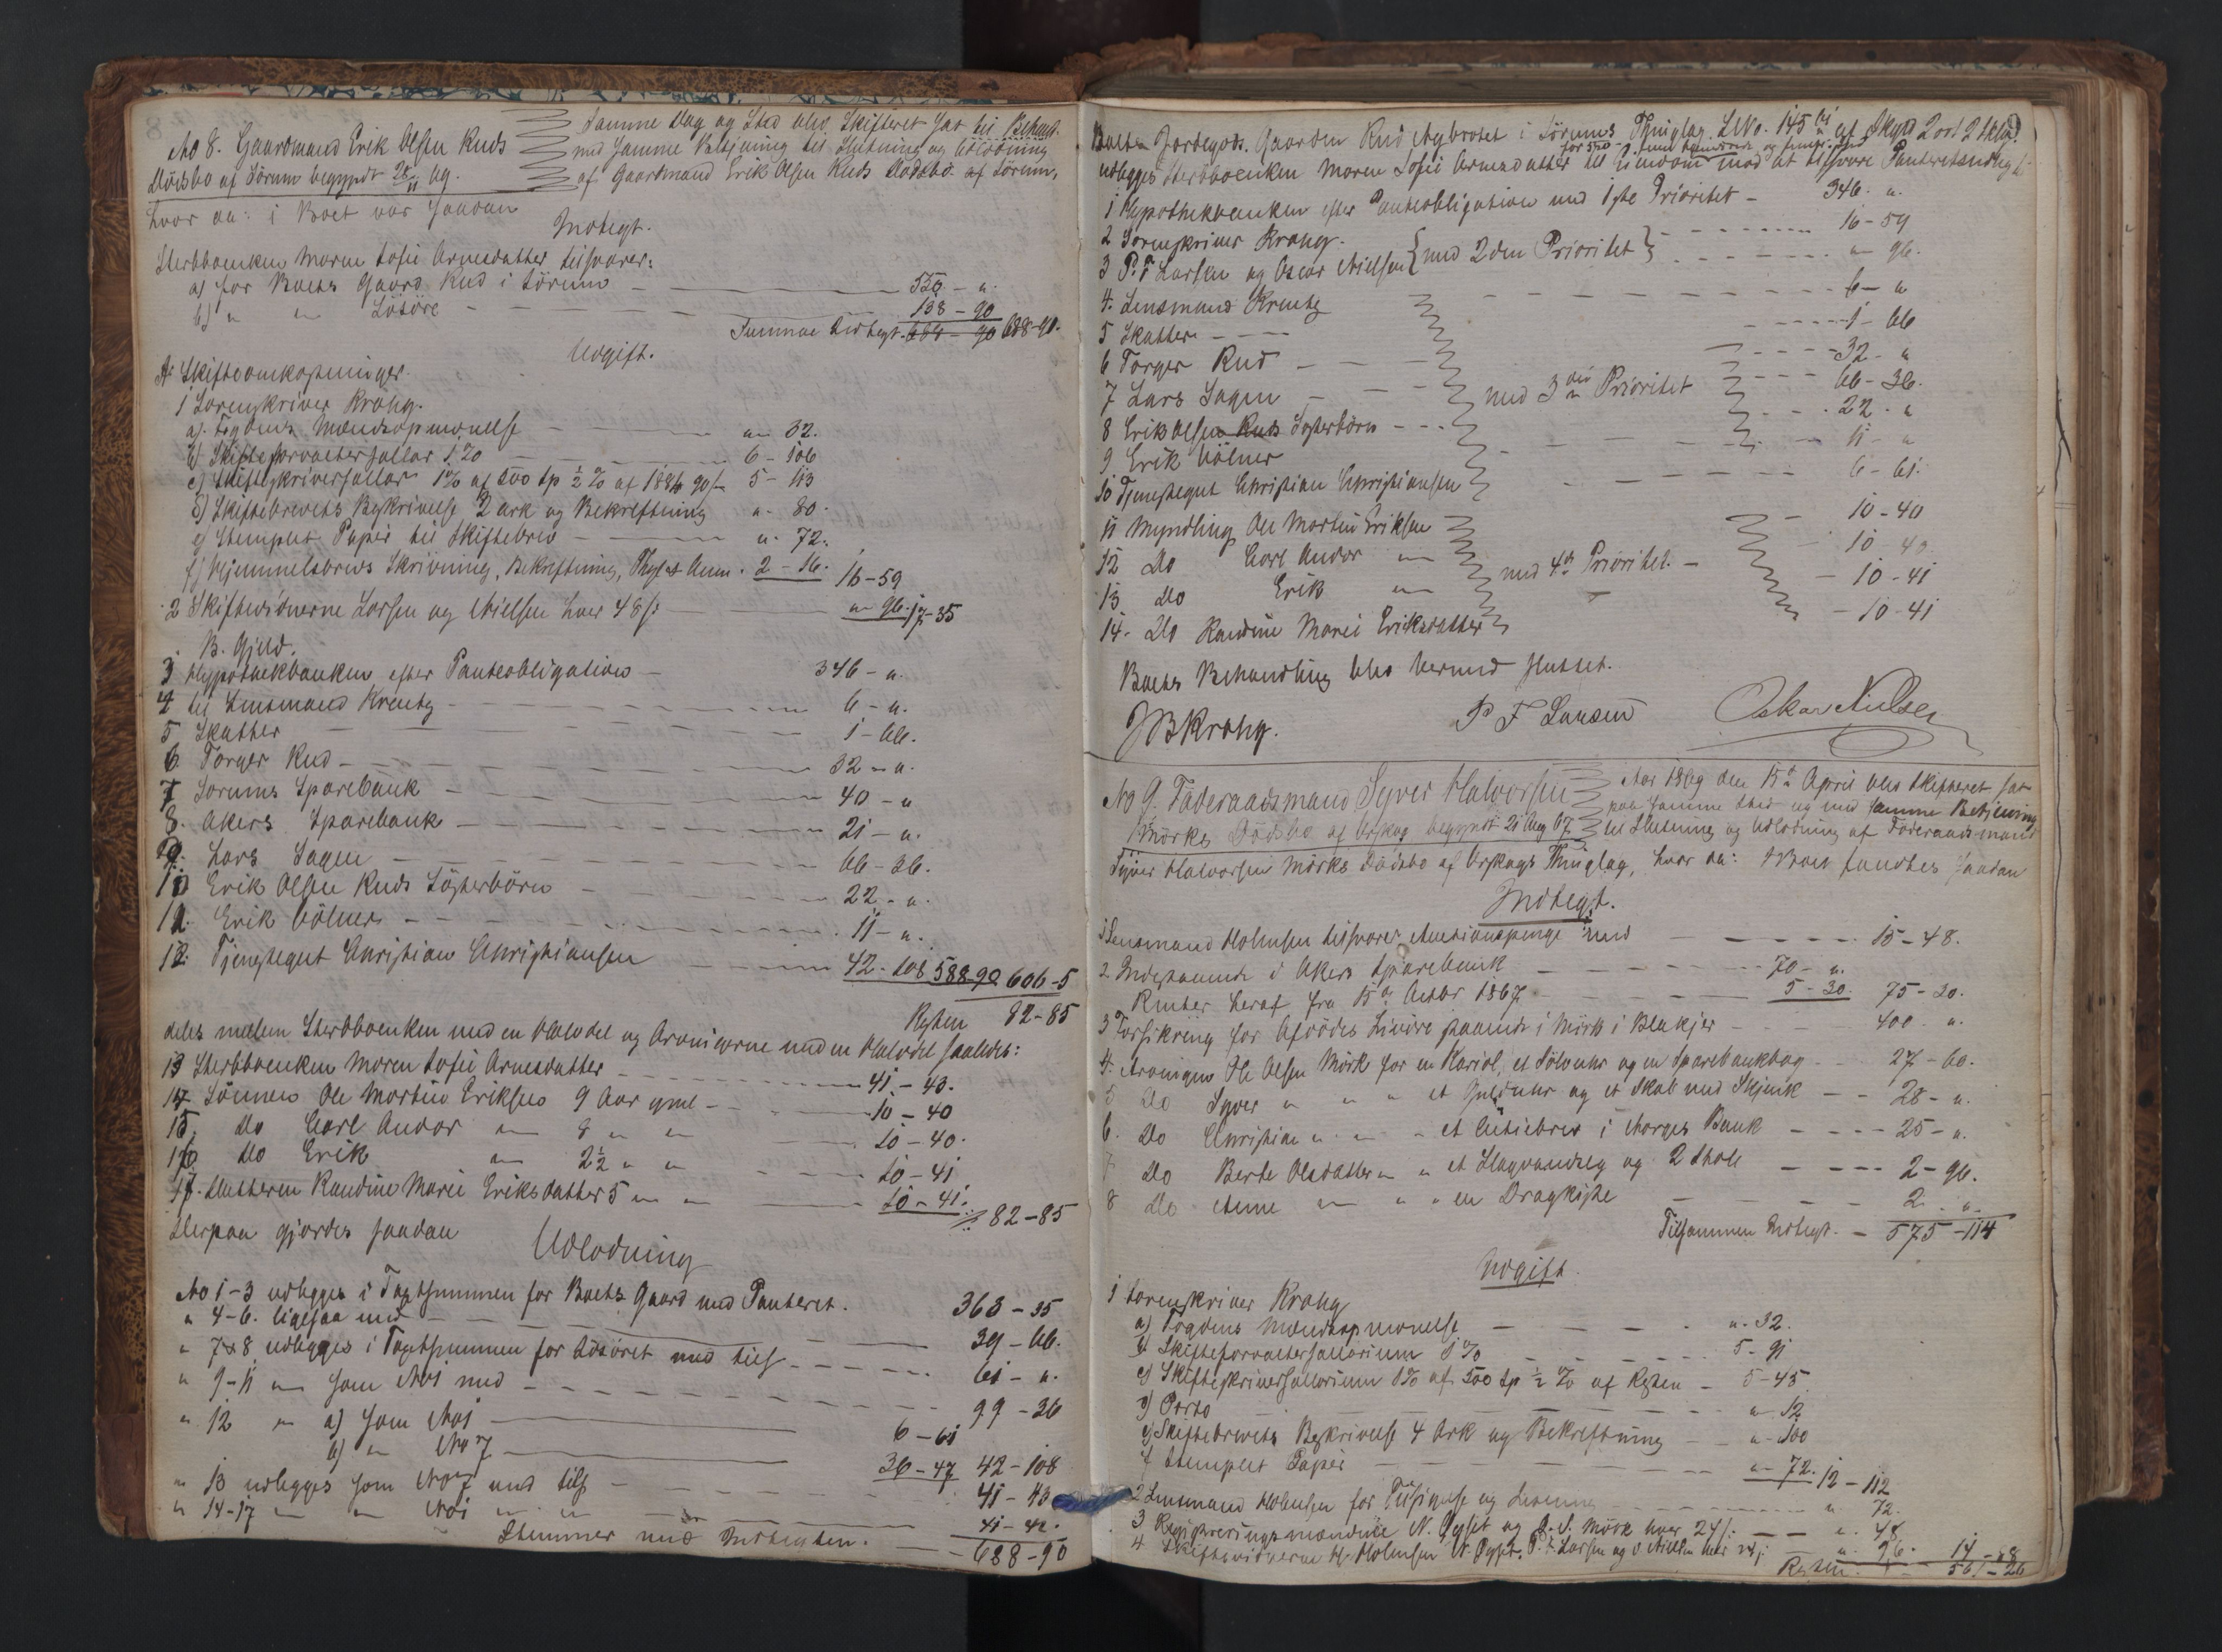 No 8. Gaardmand Erik Olsen Ruds
Dödsbo af Sörum begyndt 26/11 69.
Samme Dag og Sted blev Skifteret sat til Behand.
med samme Betjening til Slutning og Udlodning
af Gaardmand Erik Olsen Ruds Dødsbo af Sörum,
hvor da: i Boet var saadan
Indtegt.
Sterbboenken Maren Sofie Arnesdatter tilsvarer:
a) for Boets Gaard Rud i Sörum — 550 - "
b) " " Lösöre — 138 - 90
Summa Indtegt. 688 - 90 688-90.
Udgift.
A. Skifteomkostninger.
1 Sorenskriver Krohg.
a). Fogdens Mændsopnævnelse — " 32.
b) Skifteforvaltersallar 1 % — 6 - 106
c) Skifteskriversallar 1% af 500 Sp ½ % af 188 Sp 90 s 5 - 113
d) Skiftebrevets Beskrivelse 2 ark og Bekreftning " 80.
e) Stemplet Papir til Skiftebrev — " 72.
f) Hjemmelsbrevs Skrivning, Bekreftning, Thingl. & Anm. 2 - 16. 16-59
2 Skiftevidnerne Larsen og Nielsen hver 48 s: — " 96. 17-35
B. Gjeld.
3 Hypothekbanken efter Panteobligation — 346 - "
4 til Lensmand Krentz — 6 - "
5 Skatter — 1 - 66.
6 Torger Rud — 32 - "
7 Sörums Sparebank — 40 - "
8. Akers Sparebank — 21 - "
9. Lars Sagen — 66 - 36.
10 Erik Olsen Ruds Søsterbørn — 22 - "
11. Erik Völner — 11 - "
12. Tjenestegut Christian Christiansen — 42 - 108 588-90 606-5
Resten 82-85
deles mellem Sterbboenken med en Halvdel og Arvingerne med en Halvdel saaledes:
13 Sterbboenken Maren Sofie Arnesdatter — 41 - 43.
14 Sönnen Ole Martin Eriksen 9 Aar gml — 10 - 40
15. Do Carl Andor " 8 " " — 10 - 40.
16 Do Erik " 2½ " " — 10 - 41
17. Datteren Randine Marie Eriksdatter 5 " " — 10 - 41. 82-85
Herpaa gjordes saadan
Udlodning
No 1-3 udlegges i Taxtsummen for Boets Gaard med Panteret. 363 - 35
" 4-6. ligesaa med — 39 - 66.
" 7 & 8 udlegges i Taxtsummen for Lösöret med tils — 61 - "
" 9-11 " som No 1 med — 99 - 36
" 12 " a) som No 1 — 6 - 61
b) " No 7 — 36 - 47 42 - 108
" 13 udlegges som No 7 med tils — 41 - 43
" 14-17 " " No 1 " " — 41 - 42.
Stemmer med Indtegten. — 688-90
Boets Jordegods. Gaarden Rud Nybrotet i Sörums Thinglag. LNo. 145 b af Skyld 2 ort 2 skill
udlegges Sterbboenken Maren Sofie Arnesdatter til Eiendom mod at tilsvare Panteretsindeh.
1 Hypothekbanken efter Panteobligation med 1ste Prioritet — 346. "
2 Sorenskriver Krohg. — 16-59
3 P. F. Larsen og Oscar Nielsen } med 2den Prioritet — " 96.
4. Lensmand Krentz — 6 - "
5 Skatter — 1 - 66
6 Torger Rud — 32 - "
7 Lars Sagen — med 3die Prioritet 66 - 36.
8 Erik Olsen Ruds Søsterbörn — 22 - "
9 Erik Völner — 11 - "
10 Tjenestegut Christian Christiansen — 6 - 61.
11 Myndling Ole Martin Eriksen — 10 - 40
12 Do Carl Andor " — 10 - 40.
13 Do Erik " med 4de Prioritet. — 10 - 41
14. Do Randine Marie Eriksdatter — 10 - 41
Boets Behandling blev hermed sluttet.
JBKrohg. P F Larsen Oskar Nielsen
No 9. Föderaadsmand Syver Halvorsen
Mörks Dödsbo af Urskog begyndt 21 Aug 67
Aar 1869 den 15de April blev Skifteret sat
paa samme Sted og med samme Betjening
til Slutning og Udlodning af Föderaadsmand
Syver Halvorsen Mörks Dödsbo af Urskogs Thinglag, hvor da: Boet fandtes saadan
Indtegt.
1 Lensmand Holmsen tilsvarer Auctionspenge med — 15 - 48.
2. Indestaaende i Akers Sparebank — 70 - "
Renter heraf fra 15de Octbr 1867 — 5 - 30. 75-30.
3 Forsikring for Aflödes Livöre paaende i Mörk i Blakjer — 400 "
4. Arvingen Ole Olsen Mörk for en Karrol, et Sölvuhr og en Sparebankbog — 27 - 60.
5 Do Syver " " " et Gulduhr og et Skab med Skjenk — 28 - "
6. Do Christian " " " et Actiebrev i Norges Bank — 25 - "
7 Do Berte Olsdatter " " et Slagvandseg og 2 Stole — 2 - 96.
8 Do Anne " " " en Dragkiste — 2 "
Tilsammen Indtegt. — 575 - 114
Udgift.
1 Sorenskriver Krohg
a) Fogdens Mændsopnævnelse — " 32.
b) Skifteforvaltersallarium 1% — 5 - 91
c) Skifteskriversallarium 1% af 500 Sp ½ % af Resten — 5-45
d) Porto — " 12
e) Skiftebrevets Beskrivelse 4 Ark og Bekreftning — " 100
f Stemplet Papir — " 72. 12 - 112
2 Lensmand Holmsen for Tilsigelse og — " 72.
3 Registreringsmændene N. og hver 24 s: — " 48
4 Skiftevidnerne Holmsen N. P. F. Larsen og O Nielsen hver 24 s: " 96. 14 - 88
Resten 561 - 26